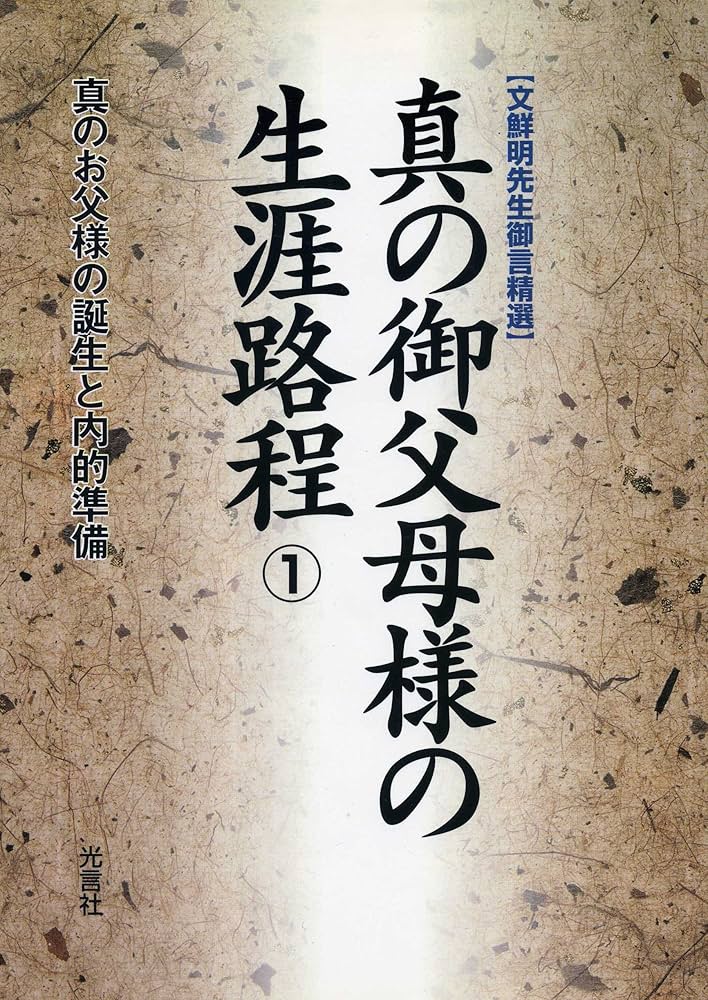 【文鮮明先生御言精選】
真の御父母様の
生涯路程①
真のお父様の誕生と内的準備
光言社